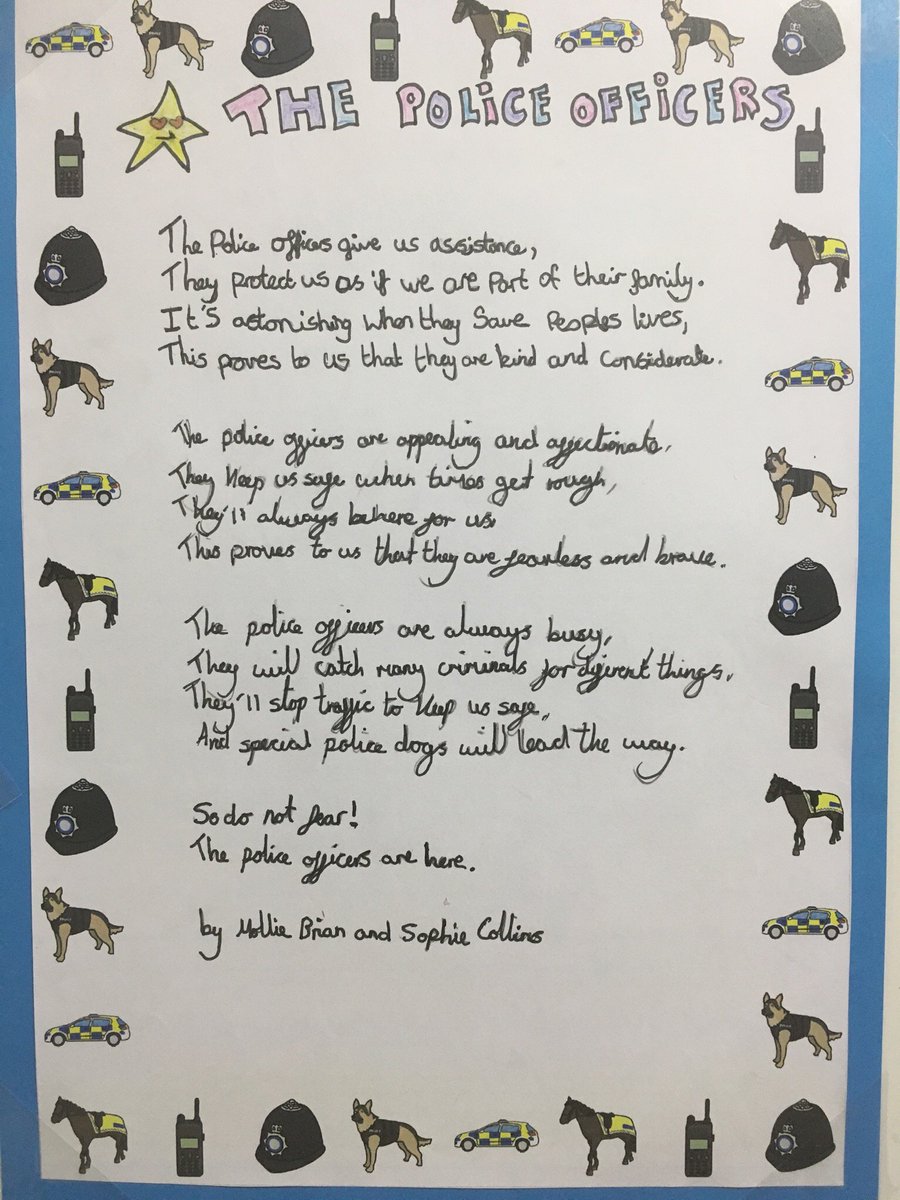 THE POLICE OFFICERS
The Police officers give us assistance,
They protect us as if we are part of their family.
It's astonishing when they save peoples lives,
This proves to us that they are kind and considerate.
The police officers are appealing and affectionate,
They keep us safe when times get rough,
They'll always be here for us,
This proves to us that they are fearless and brave.
The police officers are always busy,
They will catch many criminals for different things,
They'll stop traffic to keep us safe,
And special police dogs will lead the way.
So do not fear!
The police officers are here.
by Mollie Brian and Sophie Collins